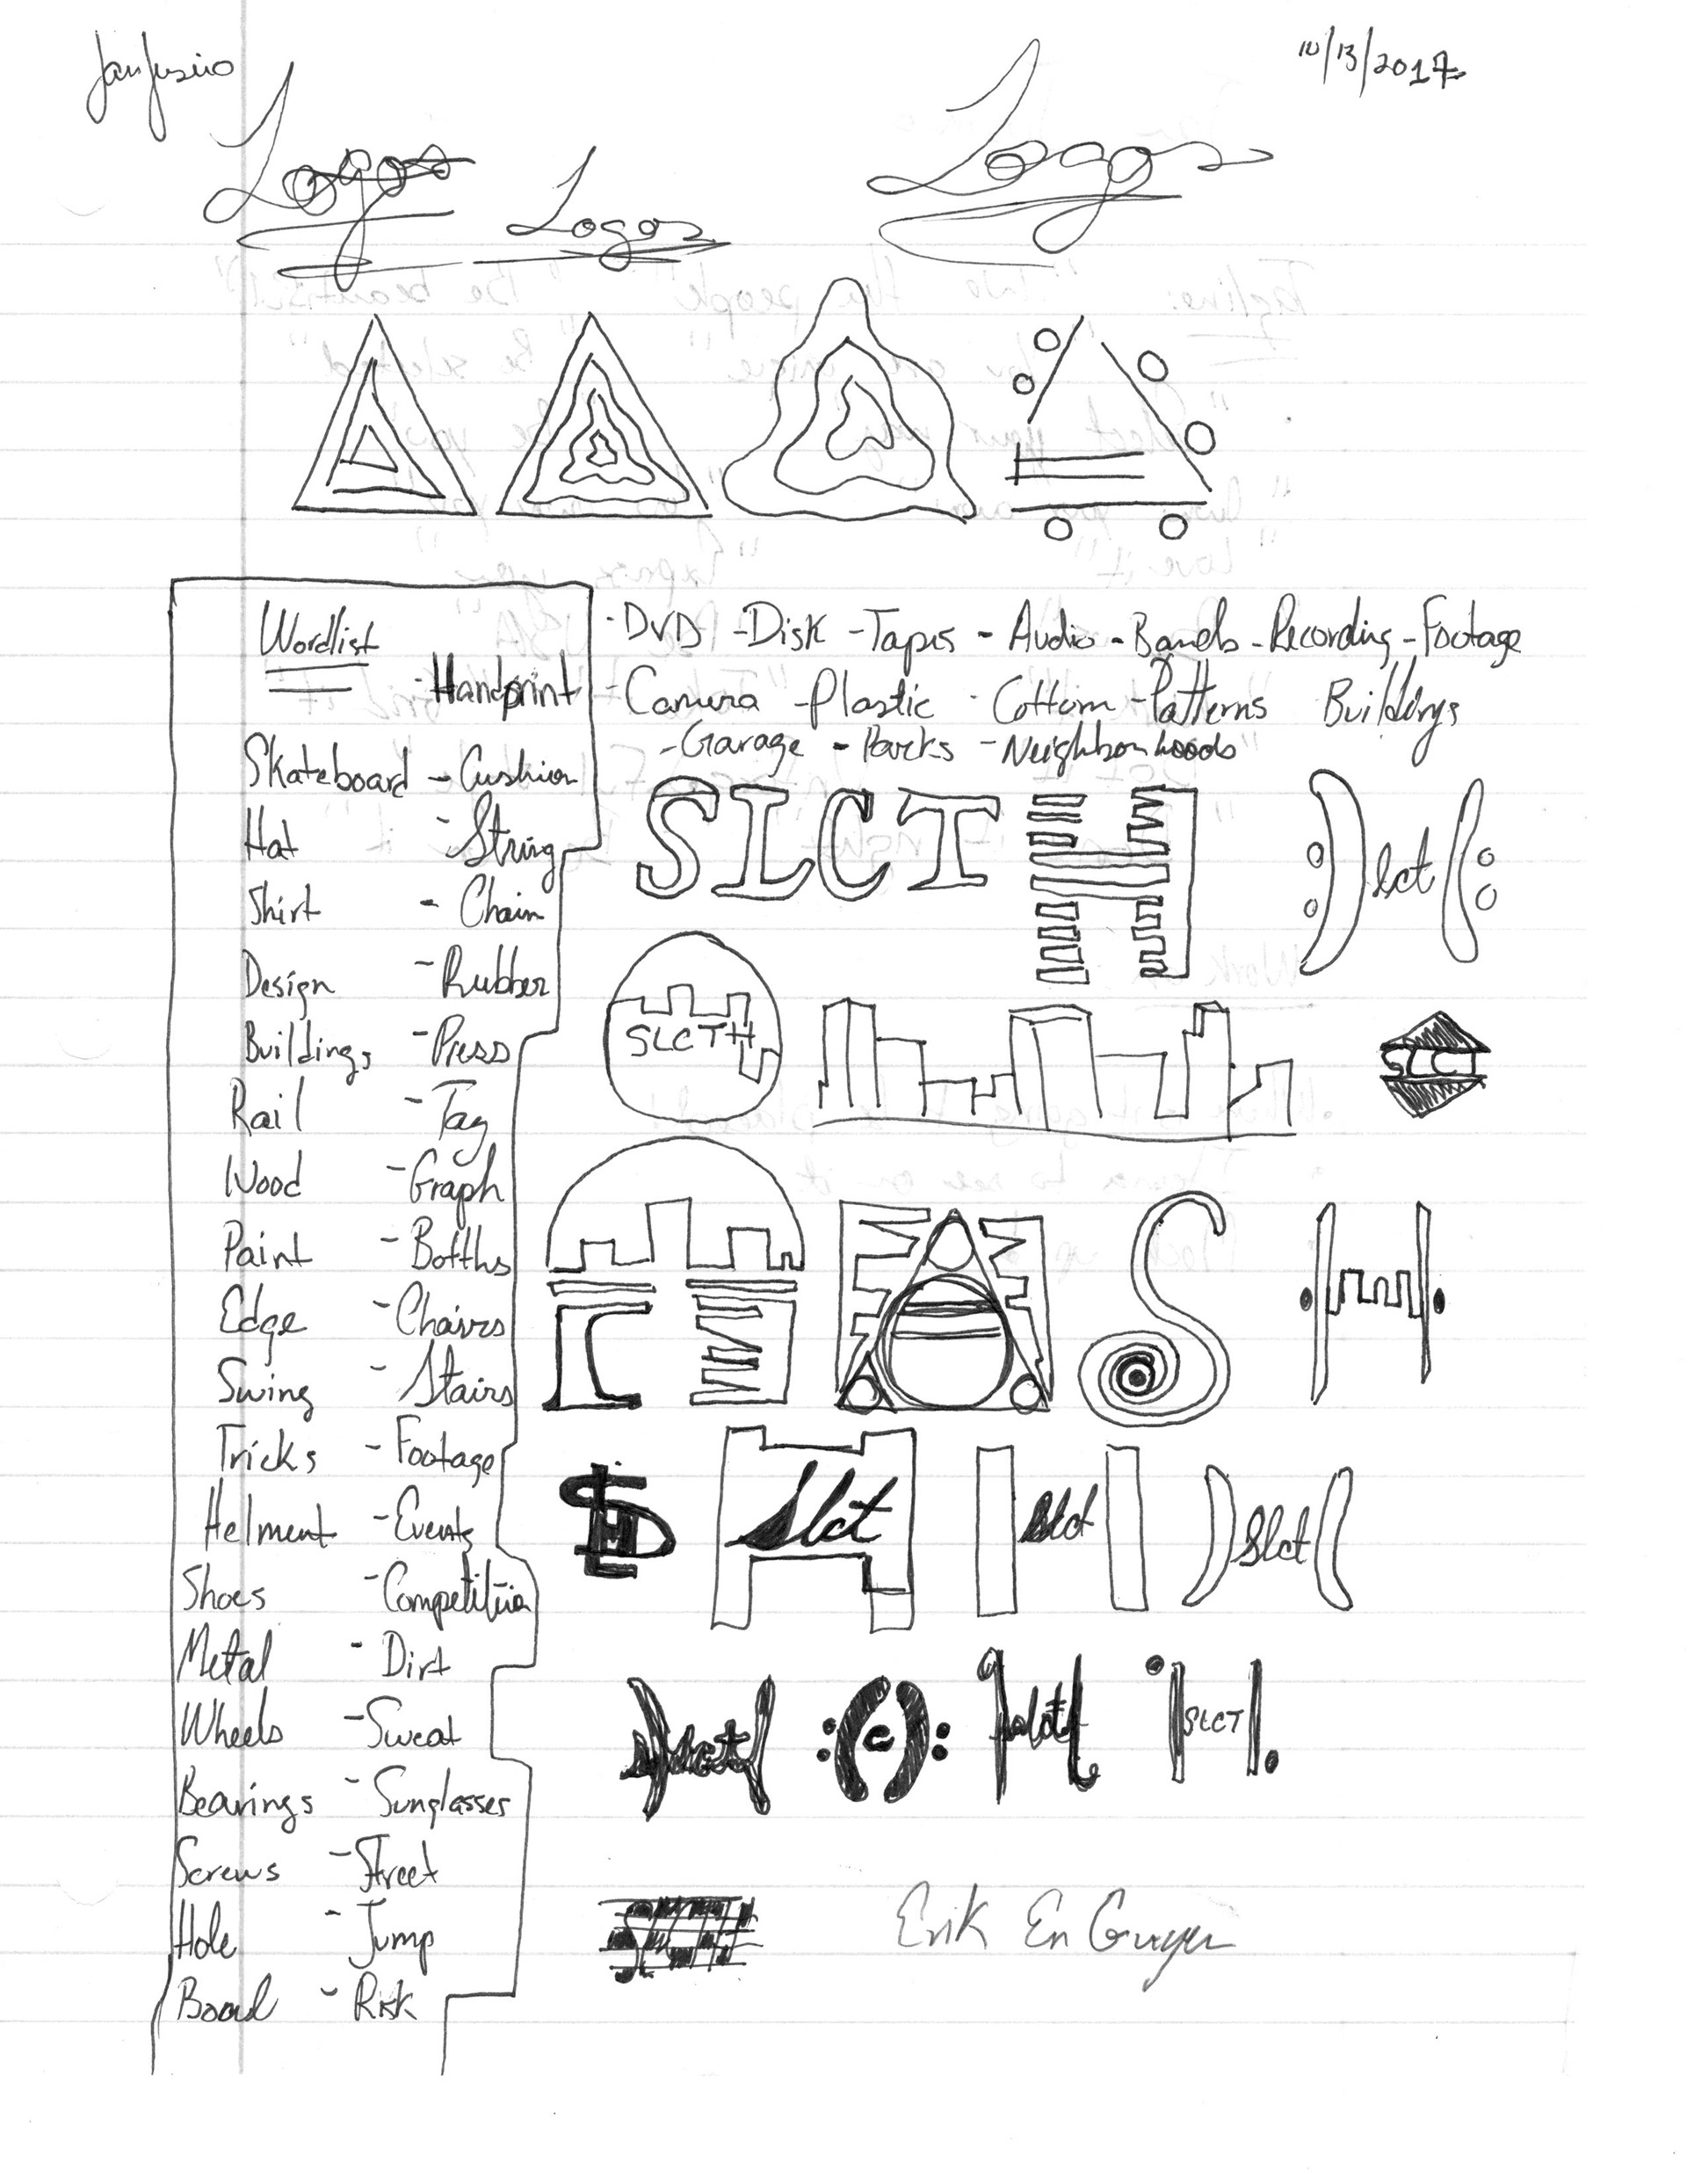 10/13/2017
Logos
Logos Logos
Wordlist
Handprint
Skateboard - Cushion
Hat - String
Shirt - Chain
Design - Rubber
Buildings - Press
Rail - Tag
Wood - Graph
Paint - Botths
Edge - Chairs
Swing - Stairs
Tricks - Footage
Helment - Events
Shoes - Competition
Metal - Dirt
Wheels - Sweat
Bearings - Sunglasses
Screws - Street
Hole - Jump
Board - Risk
- DVD - Disk - Tapes - Audio - Bands - Recording - Footage
- Camera - Plastic - Cottom - Patterns Buildings
- Garage - Parks - Neighborhoods
SLCT H slct
SLCTH
SLCT
S
Slct Slct Slct
slct c slct SLCT
Erik En